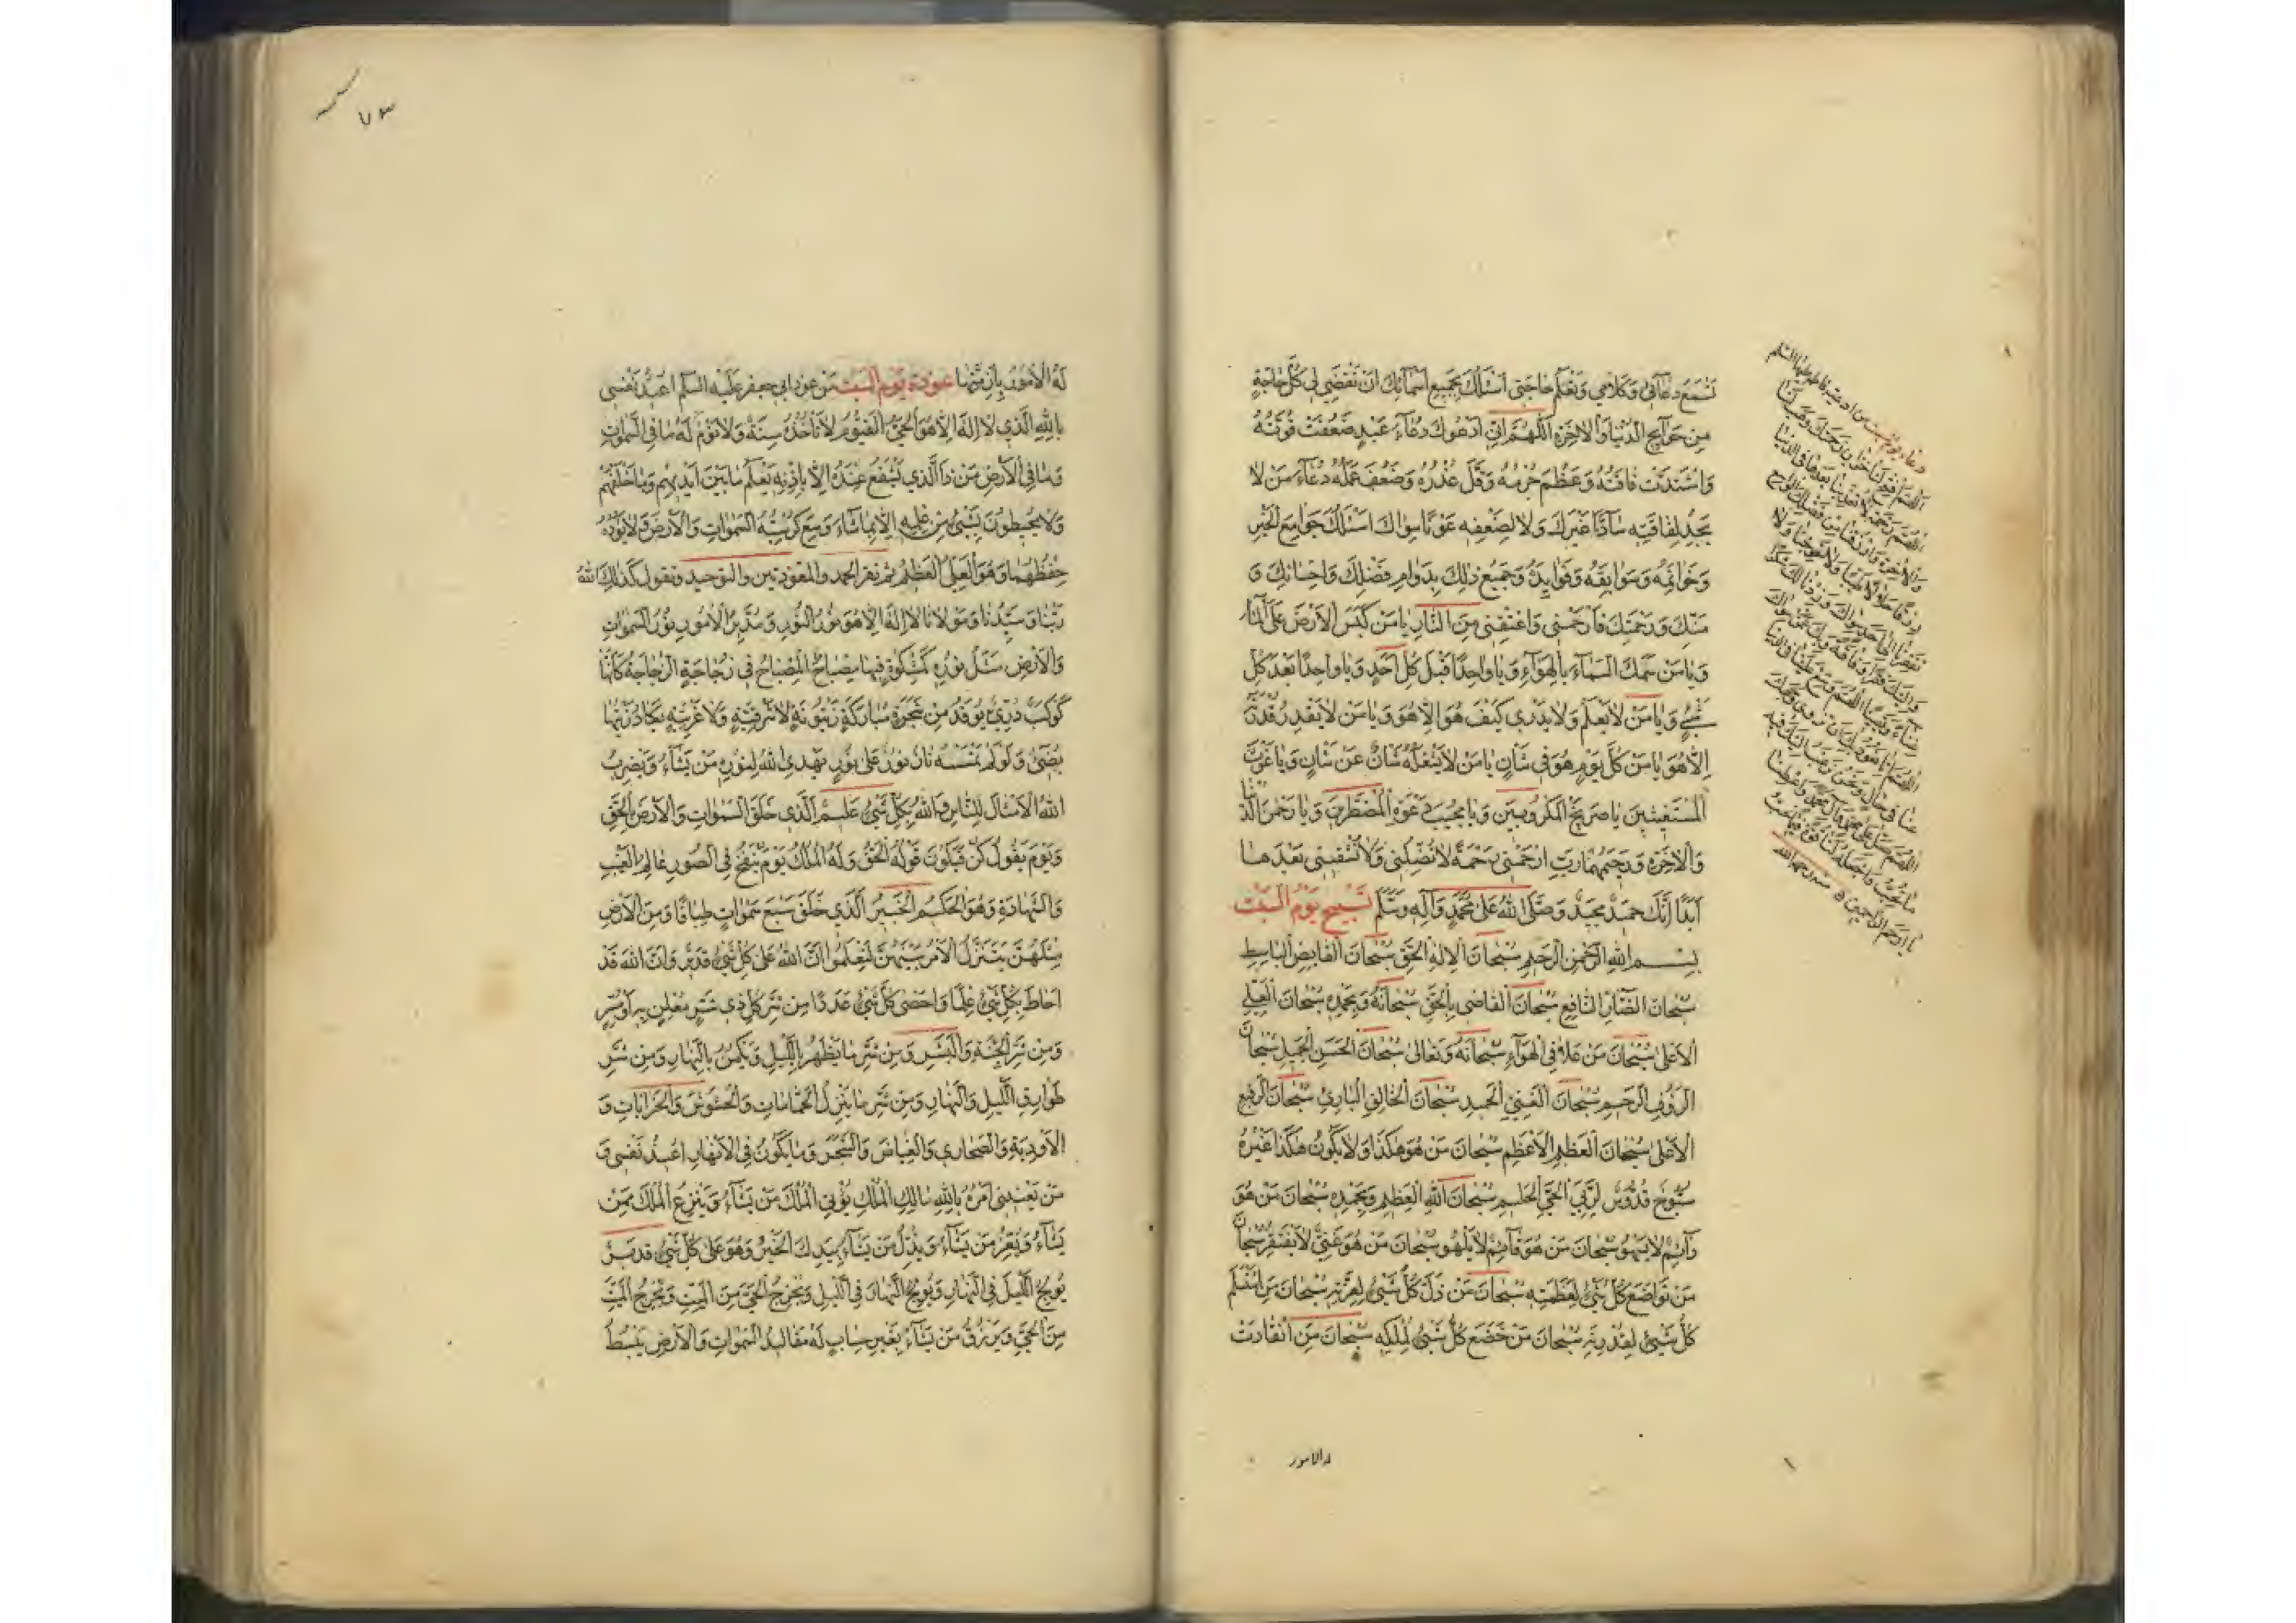 تَسْمَعُ دعَآئي وَكَلامي وَتَعْلَمُ حاجَتى اَسْئَلُكَ بِجَميعِ اَسْمآئِكَ اَنْ تَقْضِيَ لي كُلَّ حاجَةٍ
مِن حَوآيِجِ الدُنيا وَالاٰخِرَةِ اَللّٰهُمَّ اِنّي اَدْعُوكَ دُعآءَ عَبدٍ ضَعُفَتْ قُوَّتُهُ
وَاشْتَدَّتْ فاقَتُهُ وَعَظُمَ جُرْمُهُ وَقَلَّ عُذْرُهُ وَضَعُفَ عَمَلُهُ دُعآءَ مَنْ لا
يَجِدُ لِفاقَتِه سآدًّا غَيْرَكَ وَلا لِضَعْفِه عَوْنًا سِواكَ اَسْئَلُكَ جَوامِعَ الخَيْرِ
وَخَواتِمَهُ وَسَوابِقَهُ وَفَوايِدَهُ وَجَميعَ ذٰلِكَ بِدَوامِ فَضْلِكَ وَاحْسانِكَ وَ
مَنِّكَ وَرَحْمَتِكَ فَارْحَمْنى وَاعْتِقْنى مِنَ النّارِ يا مَنْ كَبَسَ الاَرْضَ عَلَى الْمآءِ
وَيا مَنْ سَمَكَ السَمآءَ بِالهَوآءِ وَيا واحِدًا قَبلَ كُلِّ اَحَدٍ وَيا واحِدًا بَعْدَ كُلِّ
شَيْءٍ وَيا مَنْ لا يَعْلَمُ وَلا يَدْري كَيْفَ هُوَ اِلّا هُوَ وَيا مَنْ لا يَقْدِرُ قُدْرَتَهُ
اِلّا هُوَ يا مَن كُلَّ يَوْمٍ هُوَ في شَاْنٍ يا مَنْ لا يَشْغَلُهُ شَاْنٌ عَنْ شَاْنٍ وَيا غَوْثَ
المُسْتَغيثينَ يا صَريخَ الْمَكْرُوبينَ وَيا مُجيبَ دَعْوَةِ الْمُضْطَرّينَ وَيا رَحْمٰنَ الدُّنْيا
وَالاٰخِرَةِ وَرَحيمَهُما رَبِّ ارْحَمْني رَحْمَةً لا تُضِلُّني وَلا تُشْقيني بَعْدَها
اَبَدًا اِنَّكَ حَميدٌ مَجيدٌ وَصَلَّى اللهُ عَلى مُحَمَّدٍ وَآلِه وَسَلَّمَ تَسْبيح يَوْمُ السَبْت
بِسْمِ اللهِ الرَّحْمٰنِ الرَّحيمِ سُبْحانَ الاِلٰهِ الْحَقِّ سُبْحانَ القابِضِ الْباسِطِ
سُبْحانَ الضّآرِّ النّافِعِ سُبْحانَ القاضى بِالْحَقِّ سُبْحانَهُ وَبِحَمْدِه سُبْحانَ الْعَلِيِّ
الاَعْلى سُبْحانَ مَنْ عَلا فِى الْهَوآءِ سُبْحانَهُ وَتَعالى سُبْحانَ الْحَسَنِ الْجَميلِ سُبْحانَ
الرَؤُفِ الرَّحيمِ سُبْحانَ الْغَنِيِّ الْحَميدِ سُبْحانَ الْخالِقِ الْبارِئِ سُبْحانَ الرَّفيعِ
الاَعْلى سُبْحانَ الْعَظيمِ الاَعْظَمِ سُبْحانَ مَنْ هُوَ هٰكَذا وَلا يَكُونُ هٰكَذا غَيْرُهُ
سُبُّوحٌ قُدُّوسٌ لِرَبِّيَ الْحَيِّ الْحَليمِ سُبْحانَ اللهِ الْعَظيمِ وَبِحَمْدِه سُبْحانَ مَنْ هُوَ
دآئِمٌ لا يَسْهُو سُبْحانَ مَنْ هُوَ قآئِمٌ لا يَلْهُو سُبْحانَ مَنْ هُوَ غَنِيٌّ لا يَفْتَقِرُ سُبْحانَ
مَنْ تَواضَعَ كُلُّ شَيْءٍ لِعَظَمَتِه سُبْحانَ مَنْ ذَلَّ كُلُّ شَيْءٍ لِعِزَّتِه سُبْحانَ مَنِ اسْتَسْلَمَ
كُلُّ شَيْءٍ لِقُدْرَتِه سُبْحانَ مَنْ خَضَعَ كُلُّ شَيْءٍ لِمُلْكِه سُبْحانَ مَنِ انْقادَتْ
له الامور
دعاء يوم السبت من ادعية فاطمة عليها السلم
اللهم افتح لنا خزاين رحمتك وهب لنا
اللهم رحمة لا تعذبنا بعدها في الدنيا
والاخرة وارزقنا من فضلك الواسع
رزقا حلالا طيبا ولا تحوجنا ولا
تفقرنا الى احد سواك وزدنا لك شكرا
واليك فقرا وفاقة وبك عمن سواك
اللهم
يا ارحم الراحمين
٧٣
لَهُ الاُمُورُ بِاَزِمَّتِها عوذة يَوْم السَبت مِن عوذ ابى جعفر عَلَيْه السَّلَم اُعيذُ نَفْسى
بِاللهِ الَّذي لا اِلٰهَ اِلّا هُوَ الْحَىُّ الْقَيُّومُ لا تَأْخُذُهُ سِنَةٌ وَلا نَوْمٌ لَهُ ما فِى السَّمٰواتِ
وَما فِى الاَرْضِ مَنْ ذَا الَّذي يَشْفَعُ عِنْدَهُ اِلّا بِاِذْنِه يَعْلَمُ ما بَيْنَ اَيْديهِمْ وَما خَلْفَهُمْ
وَلا يُحيطُونَ بِشَيْءٍ مِنْ عِلْمِه اِلّا بِما شآءَ وَسِعَ كُرْسِيُّهُ السَّمٰواتِ وَالاَرْضَ وَلا يَؤُدُهُ
حِفْظُهُما وَهُوَ الْعَلِىُّ الْعَظيمُ ثم تقرا الحمد والمعوذتين والتوحيد وتقول كَذٰلِكَ اللهُ
رَبُّنا وَسَيِّدُنا وَمَوْلانا لا اِلٰهَ اِلّا هُوَ نُورُ النُّورِ وَمُدَبِّرُ الاُمُورِ نُورُ السَّمٰواتِ
وَالاَرْضِ مَثَلُ نُورِه كَمِشْكٰوةٍ فيها مِصْباحٌ الْمِصْباحُ فى زُجاجَةٍ الزُّجاجَةُ كَاَنَّها
كَوْكَبٌ دُرِّيٌّ يُوقَدُ مِنْ شَجَرَةٍ مُبارَكَةٍ زَيْتُونَةٍ لا شَرْقِيَّةٍ وَلا غَرْبِيَّةٍ يَكادُ زَيْتُها
يُضىءُ وَلَوْ لَمْ تَمْسَسْهُ نارٌ نُورٌ عَلى نُورٍ يَهْدِى اللهُ لِنُورِه مَنْ يَشآءُ وَيَضْرِبُ
اللهُ الاَمْثالَ لِلنّاسِ وَاللهُ بِكُلِّ شَيْءٍ عَليمٌ الَّذي خَلَقَ السَّمٰواتِ وَالاَرْضَ بِالْحَقِّ
وَيَوْمَ يَقُولُ كُنْ فَيَكُونُ قَوْلُهُ الْحَقُّ وَلَهُ الْمُلْكُ يَوْمَ يُنْفَخُ فِى الصُّورِ عالِمُ الْغَيْبِ
وَالشَّهادَةِ وَهُوَ الْحَكيمُ الْخَبيرُ الَّذي خَلَقَ سَبْعَ سَمٰواتٍ طِباقًا وَمِنَ الاَرْضِ
مِثْلَهُنَّ يَتَنَزَّلُ الاَمْرُ بَيْنَهُنَّ لِتَعْلَمُوا اَنَّ اللهَ عَلى كُلِّ شَيْءٍ قَديرٌ وَاَنَّ اللهَ قَدْ
اَحاطَ بِكُلِّ شَيْءٍ عِلْمًا وَاَحْصى كُلَّ شَيْءٍ عَدَدًا مِنْ شَرِّ كُلِّ ذي شَرٍّ مُعْلِنٍ بِه اَوْ مُسِرٍّ
وَمِنْ شَرِّ الْجِنَّةِ وَالْبَشَرِ وَمِنْ شَرِّ ما يَظْهَرُ بِاللَّيْلِ وَيَكْمُنُ بِالنَّهارِ وَمِنْ شَرِّ
طَوارِقِ اللَّيْلِ وَالنَّهارِ وَمِنْ شَرِّ ما يَنْزِلُ الْحَمّاماتِ وَالْحُشُوشَ وَالْخَراباتِ وَ
الاَوْدِيَةَ وَالصَّحارِيَ وَالْغِياضَ وَالشَّجَرَ وَما يَكُونُ فِى الاَنْهارِ اُعيذُ نَفْسى وَ
مَنْ يَعْنينى اَمْرُهُ بِاللهِ مالِكِ الْمُلْكِ يُؤْتِي الْمُلْكَ مَنْ يَشآءُ وَيَنْزِعُ الْمُلْكَ مِمَّنْ
يَشآءُ وَيُعِزُّ مَنْ يَشآءُ وَيُذِلُّ مَنْ يَشآءُ بِيَدِكَ الْخَيْرُ وَهُوَ عَلى كُلِّ شَيْءٍ قَديرٌ
يُولِجُ اللَّيْلَ فِى النَّهارِ وَيُولِجُ النَّهارَ فِى اللَّيْلِ وَيُخْرِجُ الْحَيَّ مِنَ الْمَيِّتِ وَيُخْرِجُ الْمَيِّتَ
مِنَ الْحَيِّ وَيَرْزُقُ مَنْ يَشآءُ بِغَيْرِ حِسابٍ لَهُ مَقاليدُ السَّمٰواتِ وَالاَرْضِ يَبْسُطُ